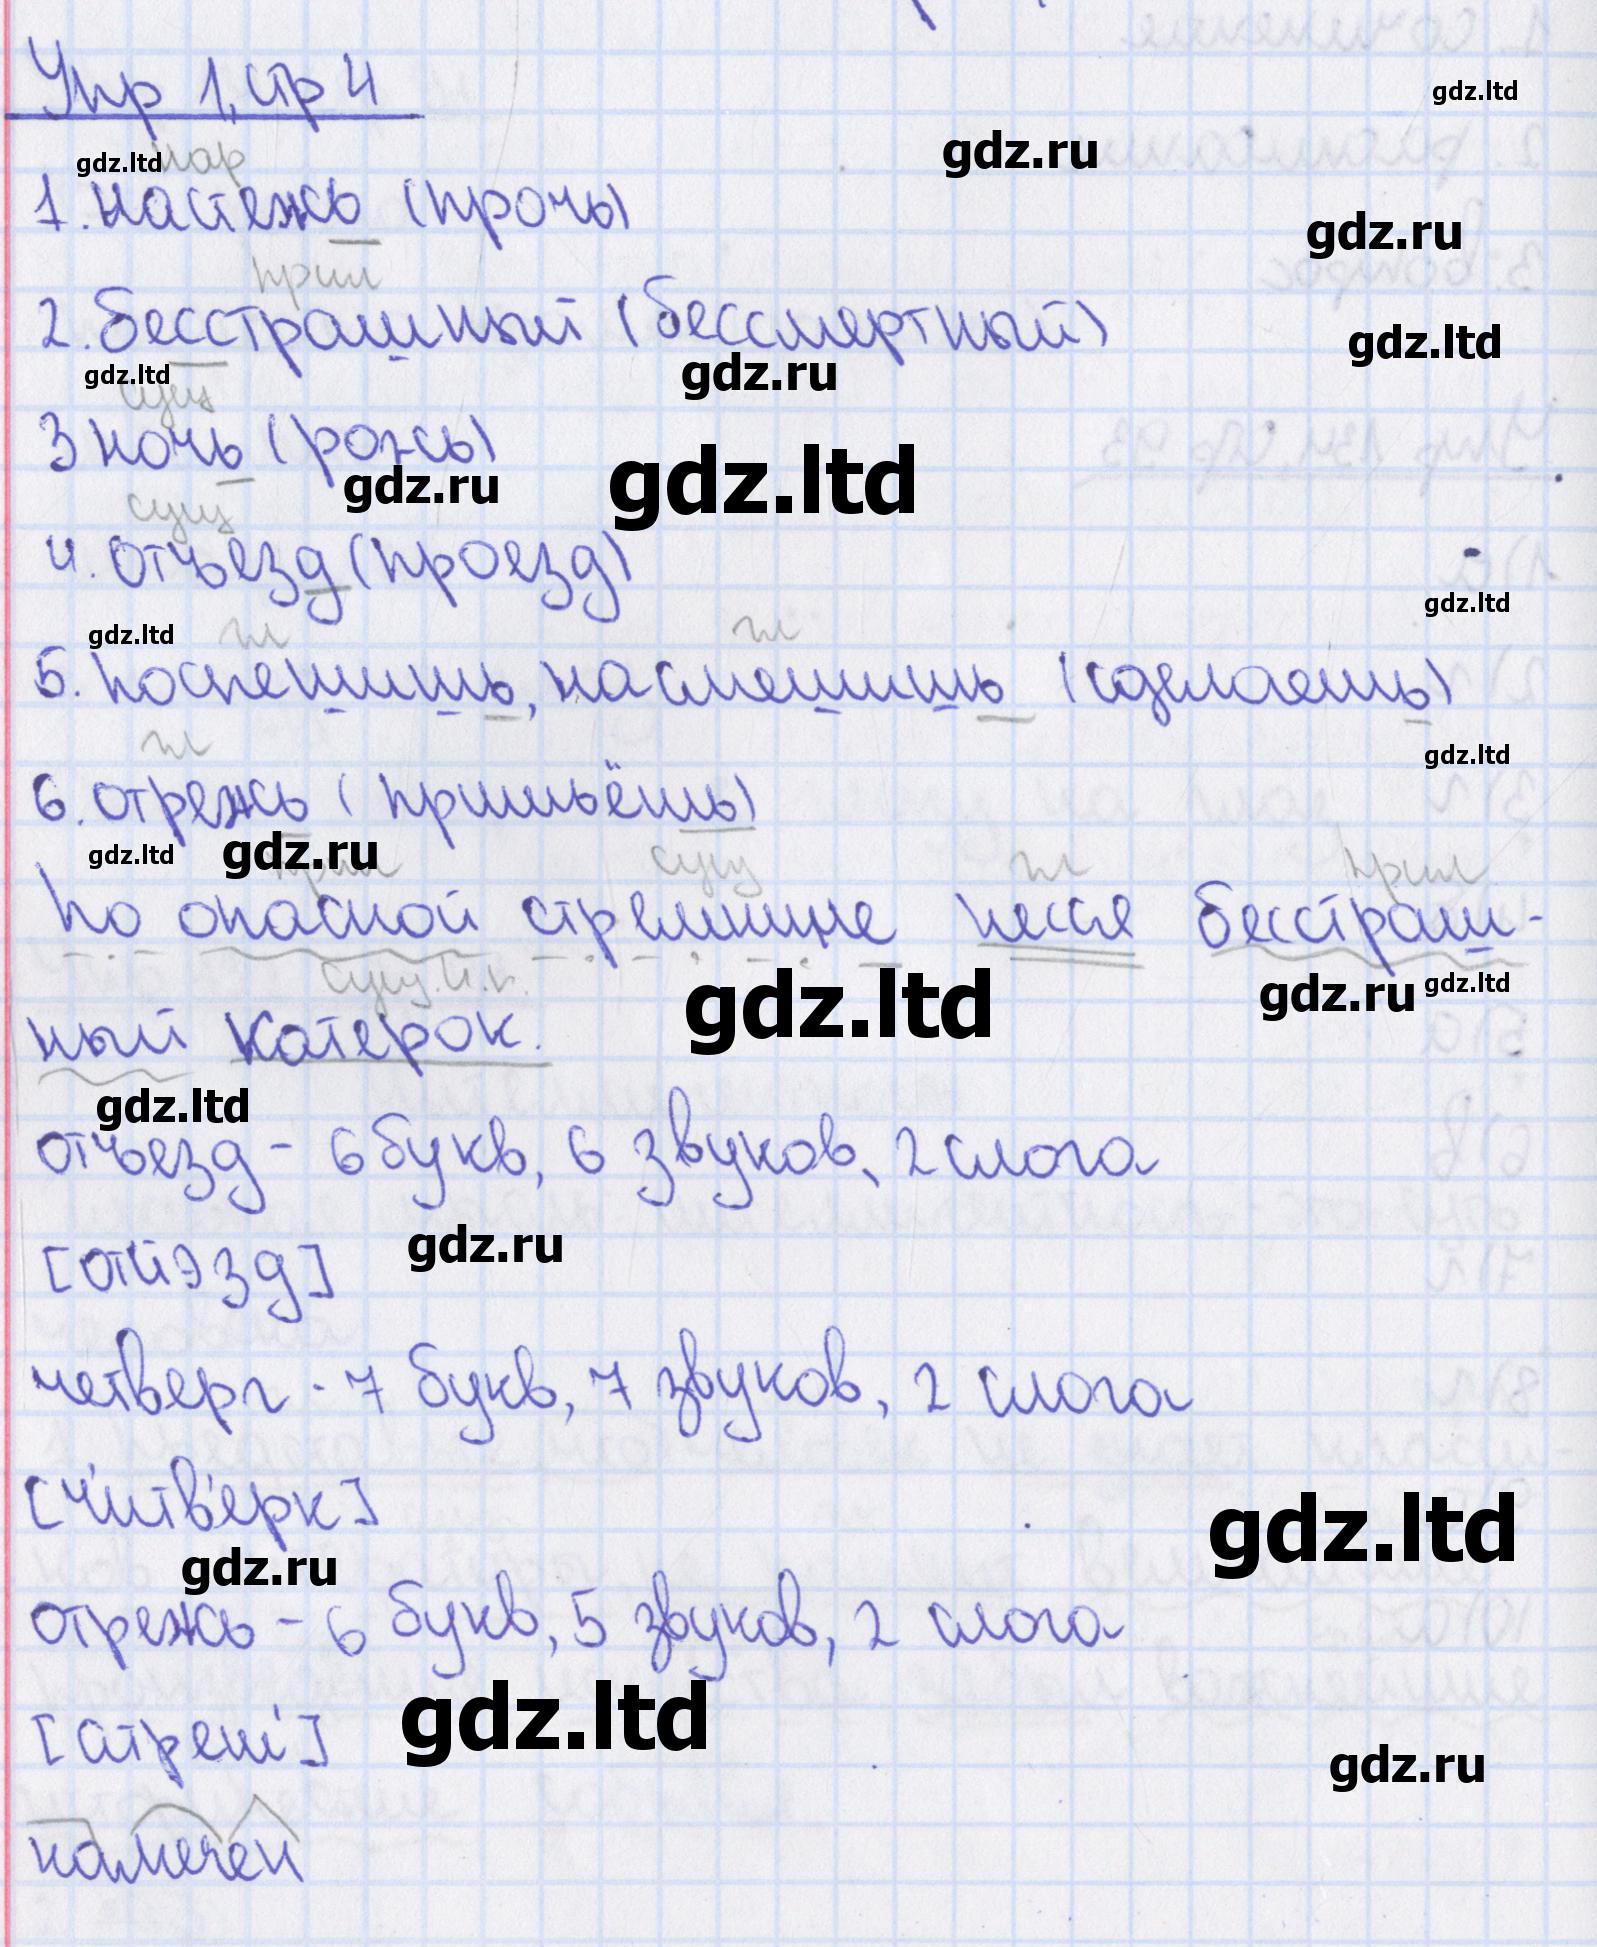 Упр 1, стр 4
gdz.ltd
gdz.ltd нар gdz.ru
1. настежь (прочь)
gdz.ru
прил
2. бесстрашный (бессмертный) gdz.ltd
gdz.ltd gdz.ru
сущ
3 ночь (рожь)
gdz.ru gdz.ltd
сущ
4. отъезд (проезд)
gdz.ltd
gdz.ltd гл гл
5. поспешишь, насмешишь (сделаешь)
гл gdz.ltd
6. отрежь (пришьёшь)
gdz.ltd gdz.ru
прил сущ гл прил
По опасной стремнине несся бесстраш-
сущ. И.п. gdz.ltd gdz.ru gdz.ltd
ный катерок.
gdz.ltd
отъезд - 6 букв, 6 звуков, 2 слога
gdz.ru
[отйэзд]
четверг - 7 букв, 7 звуков, 2 слога
[ч'итв'ерк]
gdz.ltd
gdz.ru
отрежь - 6 букв, 5 звуков, 2 слога
gdz.ltd
[атреш']
gdz.ru
намечен